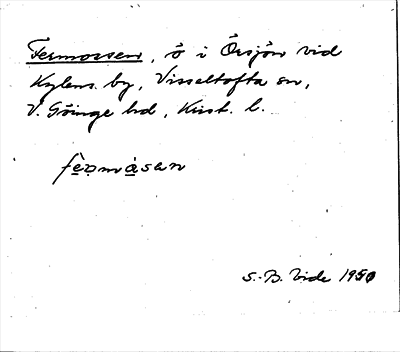 Fermossen, ö i Örsjön vid
Kylens by, Visseltofta sn,
V. Göinge hd, Krist. l.
fèrmåsan
S.-B. Vide 1950